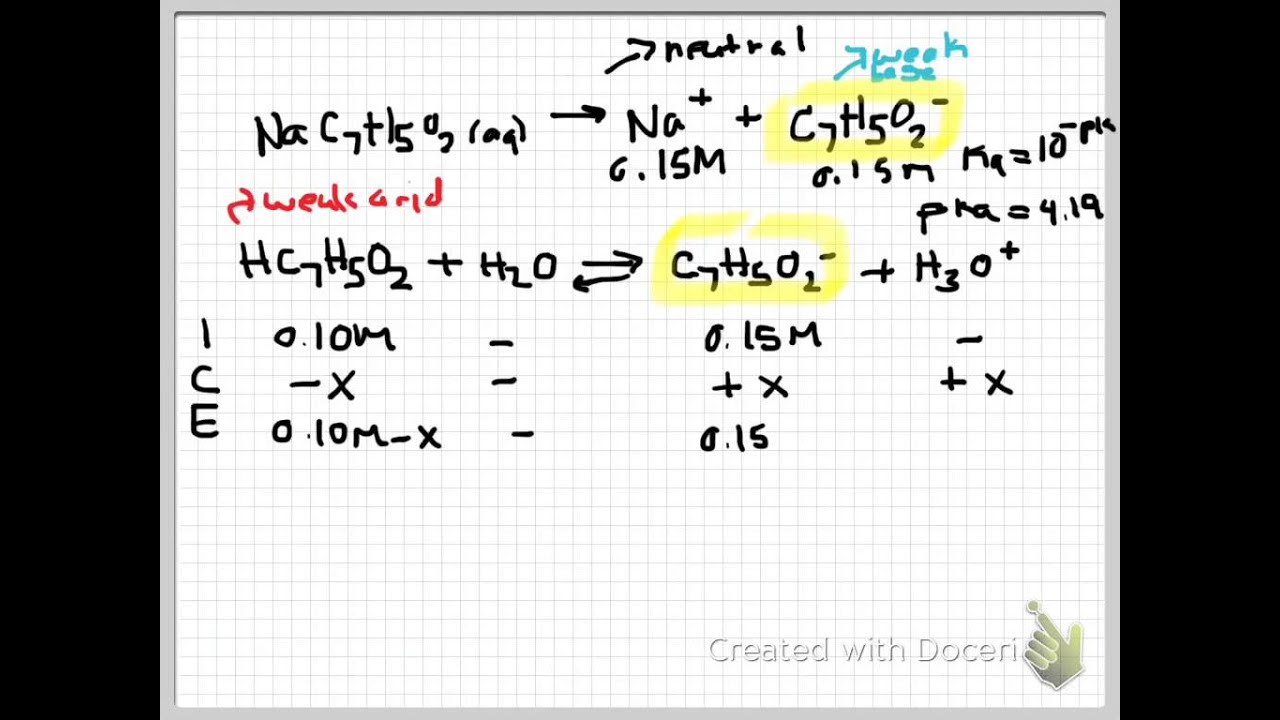 neutral
weak
base
NaC₇H₅O₂(aq) → Na⁺ + C₇H₅O₂⁻
0.15M 0.15M Ka = 10^-pka
weak acid
pKa = 4.19
HC₇H₅O₂ + H₂O ⇌ C₇H₅O₂⁻ + H₃O⁺
I 0.10M - 0.15M -
C -x - +x +x
E 0.10M-x - 0.15
Created with Doceri